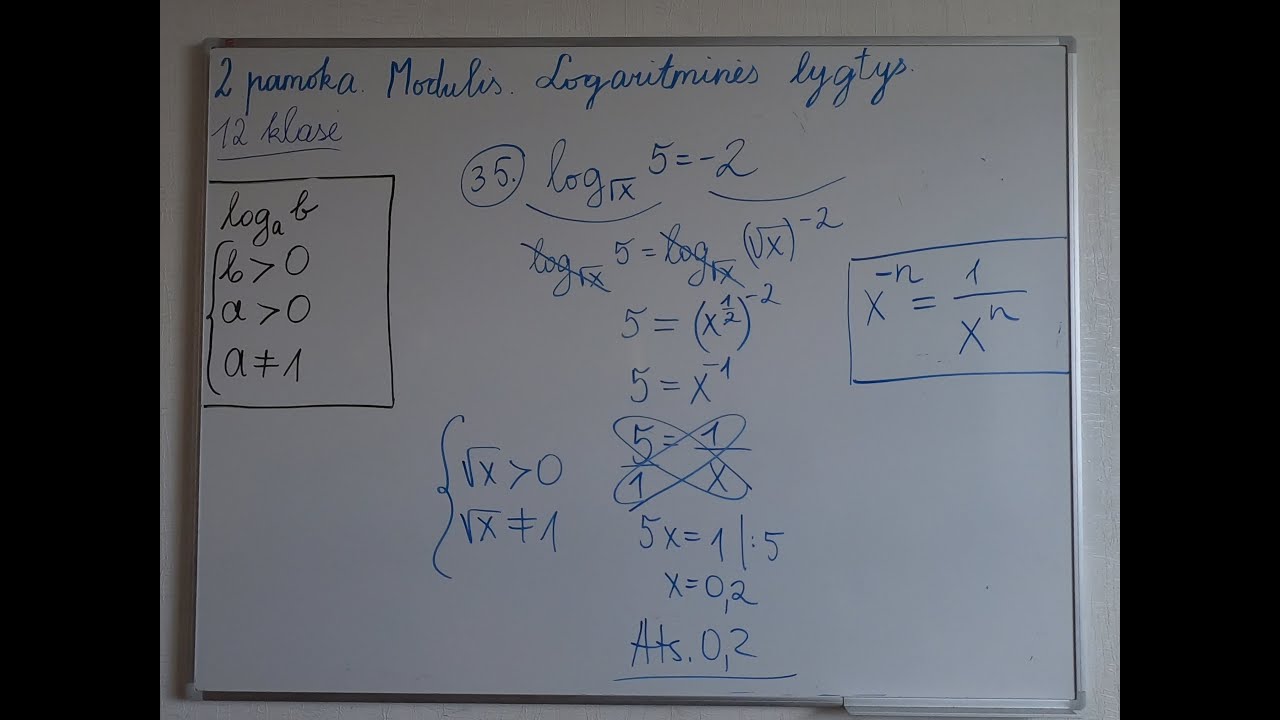 2 pamoka. Modulis. Logaritminės lygtys.
12 klasė
logₐ b
b > 0
a > 0
a ≠ 1
35. log_√x 5 = -2
log_√x 5 = log_√x (√x)⁻²
5 = (x^(1/2))⁻²
5 = x⁻¹
5/1 = 1/x
5x = 1 |:5
x = 0,2
Ats. 0,2
√x > 0
√x ≠ 1
x⁻ⁿ = 1/xⁿ